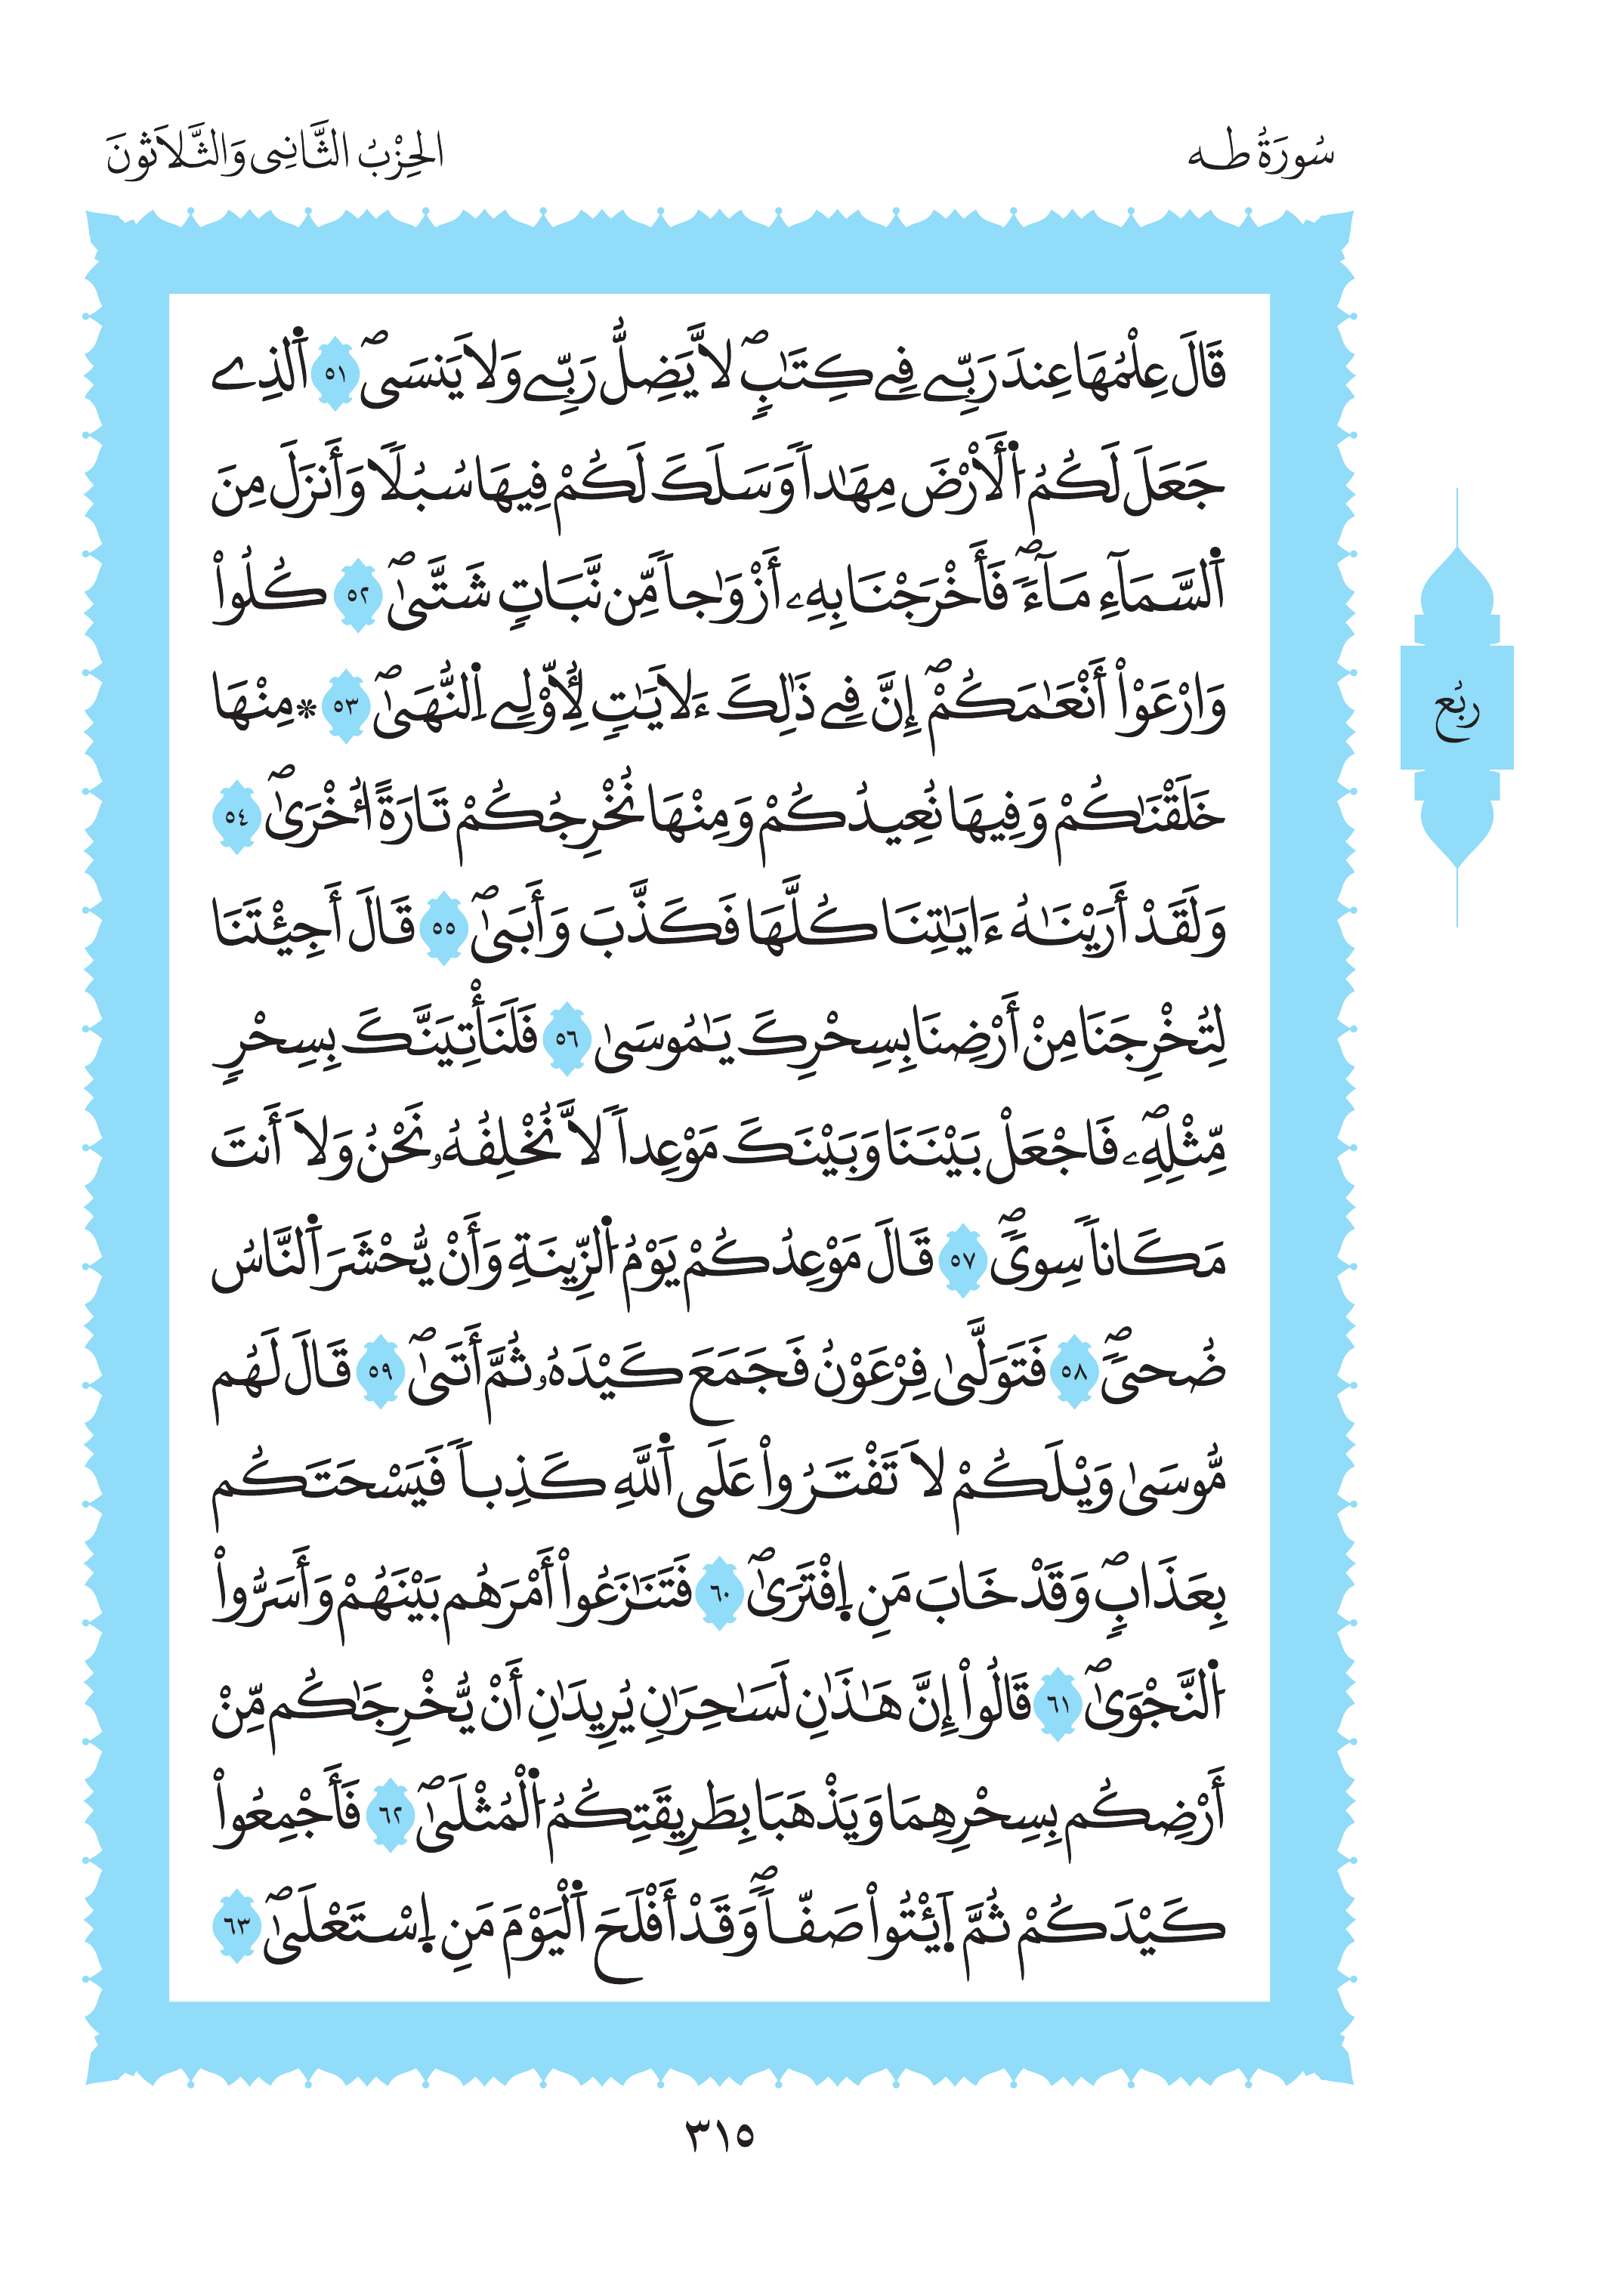 سُورَةُ طـه
الحِزْبُ الثَّانِى وَالثَّلَاثُونَ
قَالَ عِلْمُهَا عِندَ رَبِّے فِے كِتَٰبٍۖ لَّا يَضِلُّ رَبِّے وَلَا يَنسَىۖ ٥١ اَ۬لذِے
جَعَلَ لَكُمُ اُ۬لَارْضَ مِهَٰداٗ وَسَلَكَ لَكُمْ فِيهَا سُبُلاٗ وَأَنزَلَ مِنَ
اَ۬لسَّمَآءِ مَآءٗۖ فَأَخْرَجْنَا بِهِۦ أَزْوَٰجاٗ مِّن نَّبَاتٖ شَتَّىٰۖ ٥٢ كُلُواْ
وَارْعَوْاْ أَنْعَٰمَكُمْۖ إِنَّ فِے ذَٰلِكَ ءَلَايَٰتٖ لِّأُوْلِے اِ۬لنُّهَىٰۖ ٥٣ ۞ مِنْهَا
خَلَقْنَٰكُمْ وَفِيهَا نُعِيدُكُمْ وَمِنْهَا نُخْرِجُكُمْ تَارَةً ا۟خْرَىٰۖ ٥٤
وَلَقَدْ أَرَيْنَٰهُ ءَايَٰتِنَا كُلَّهَا فَكَذَّبَ وَأَبَىٰۖ ٥٥ قَالَ أَجِئْتَنَا
لِتُخْرِجَنَا مِنْ أَرْضِنَا بِسِحْرِكَ يَٰمُوسَىٰ ٥٦ فَلَنَأْتِيَنَّكَ بِسِحْرٖ
مِّثْلِهِۦۖ فَاجْعَلْ بَيْنَنَا وَبَيْنَكَ مَوْعِداٗ لَّا نُخْلِفُهُۥ نَحْنُ وَلَا أَنتَ
مَكَاناٗ سِوىٗۖ ٥٧ قَالَ مَوْعِدُكُمْ يَوْمُ اُ۬لزِّينَةِ وَأَنْ يُّحْشَرَ اَ۬لنَّاسُ
ضُحىٗۖ ٥٨ فَتَوَلَّىٰ فِرْعَوْنُ فَجَمَعَ كَيْدَهُۥ ثُمَّ أَتَىٰۖ ٥٩ قَالَ لَهُم
مُّوسَىٰ وَيْلَكُمْ لَا تَفْتَرُواْ عَلَى اَ۬للَّهِ كَذِباٗ فَيَسْحَتَكُم
بِعَذَابٖۖ وَقَدْ خَابَ مَنِ اِ۪فْتَرَىٰۖ ٦٠ فَتَنَٰزَعُواْ أَمْرَهُم بَيْنَهُمْ وَأَسَرُّواْ
اُ۬لنَّجْوَىٰۖ ٦١ قَالُواْ إِنَّ هَٰذَٰنِ لَسَٰحِرَٰنِ يُرِيدَٰنِ أَنْ يُّخْرِجَٰكُم مِّنْ
أَرْضِكُم بِسِحْرِهِمَا وَيَذْهَبَا بِطَرِيقَتِكُمُ اُ۬لْمُثْلَىٰۖ ٦٢ فَأَجْمِعُواْ
كَيْدَكُمْ ثُمَّ اَ۪ئْتُواْ صَفّاٗۖ وَقَدْ أَفْلَحَ اَ۬لْيَوْمَ مَنِ اِ۪سْتَعْلَىٰۖ ٦٣
ربُع
٣١٥